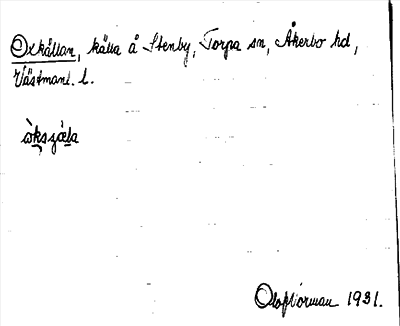 Oxkällan, källa å Stenby, Torpa sn, Åkerbo hd,
Västmanl. l.
Olof Norman 1931.